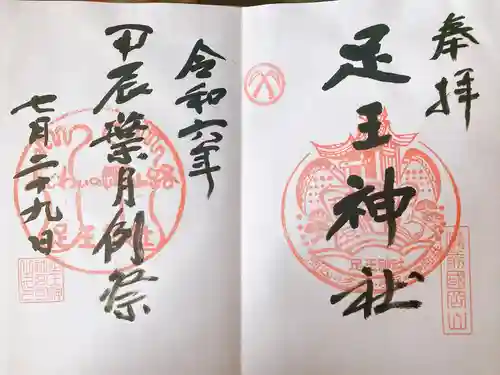 奉拝
足王神社
令和六年
甲辰葉月例祭
七月二十九日
足王神社